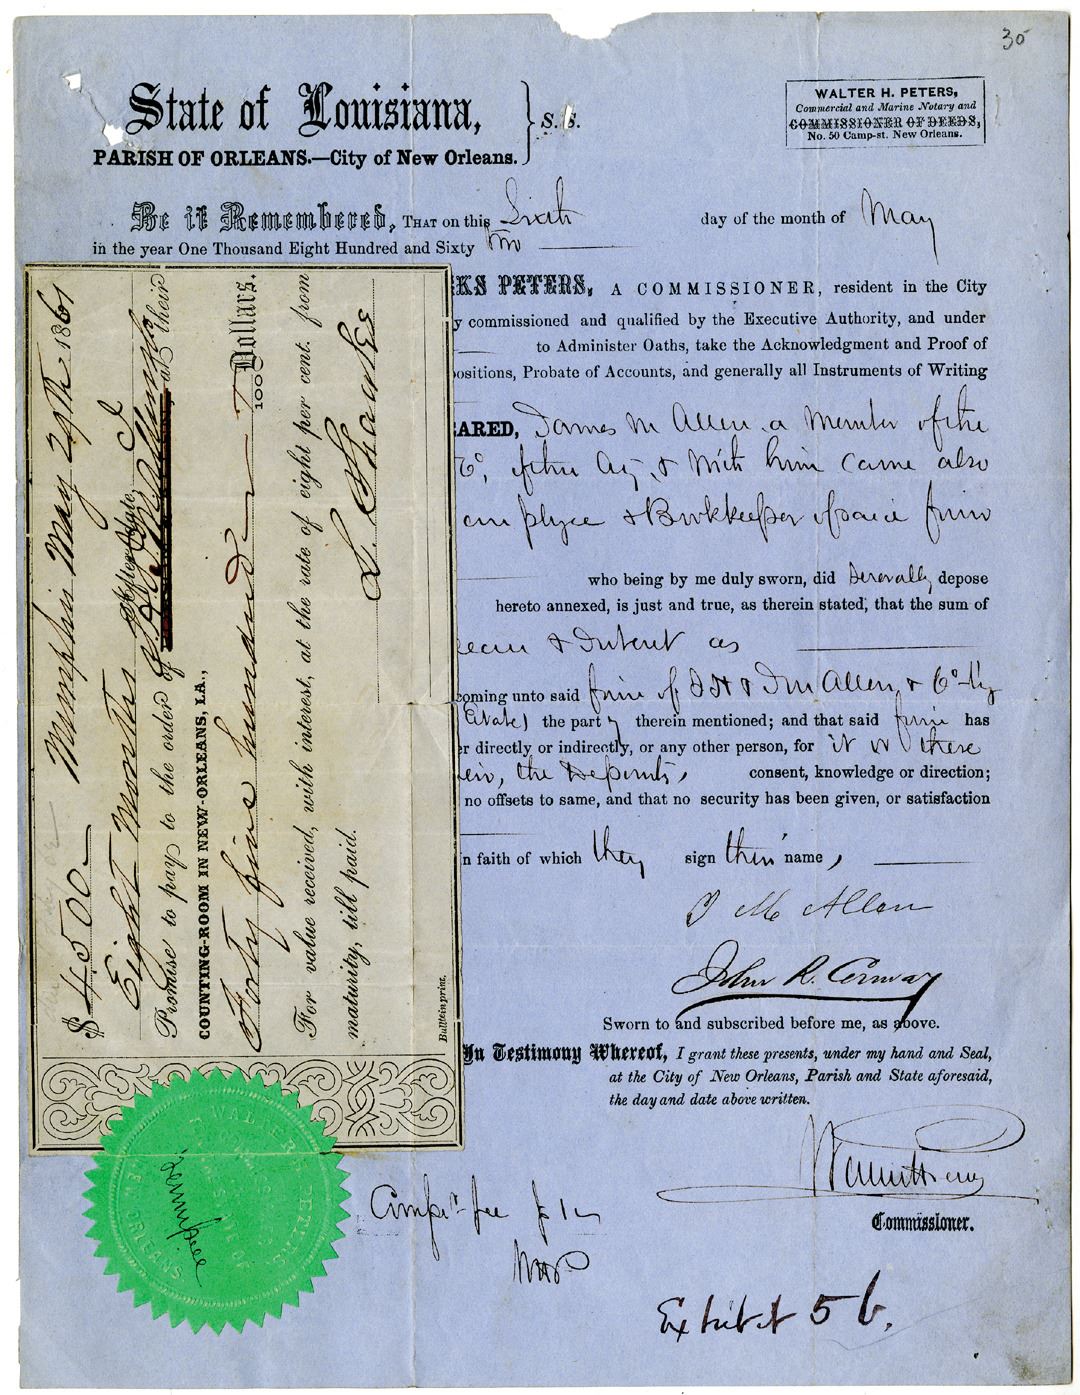 30
State of Louisiana,
PARISH OF ORLEANS.—City of New Orleans.
S. S.
WALTER H. PETERS,
Commercial and Marine Notary and
COMMISSIONER OF DEEDS,
No. 50 Camp-st. New Orleans.
Be it Remembered, THAT on this Sixth day of the month of May
in the year One Thousand Eight Hundred and Sixty Two
KS PETERS, A COMMISSIONER, resident in the City
y commissioned and qualified by the Executive Authority, and under
to Administer Oaths, take the Acknowledgment and Proof of
ositions, Probate of Accounts, and generally all Instruments of Writing
EARED, James M Allen, a Member of the
Co, of this City, & with him came also
employee & Bookkeeper of said firm
who being by me duly sworn, did severally depose
hereto annexed, is just and true, as therein stated, that the sum of
& Interest as
coming unto said firm of & Allen & Co by
the party therein mentioned; and that said firm has
r directly or indirectly, or any other person, for it or there
the Deponents, consent, knowledge or direction;
no offsets to same, and that no security has been given, or satisfaction
n faith of which they sign their name,
J M Allen
John R. Conway
Sworn to and subscribed before me, as above.
In Testimony Whereof, I grant these presents, under my hand and Seal,
at the City of New Orleans, Parish and State aforesaid,
the day and date above written.
Commissioner.
fee
Exhibit 5 b.
$ 4500- Memphis May 29th 1861
Eight Months After Date, I
Promise to pay to the order of at their
COUNTING-ROOM IN NEW-ORLEANS, LA.,
Forty five hundred 100 Dollars.
For value received, with interest, at the rate of eight per cent. from
maturity, till paid.
Bulletin print.
WALTER H. PETERS
STATE OF
NEW ORLEANS